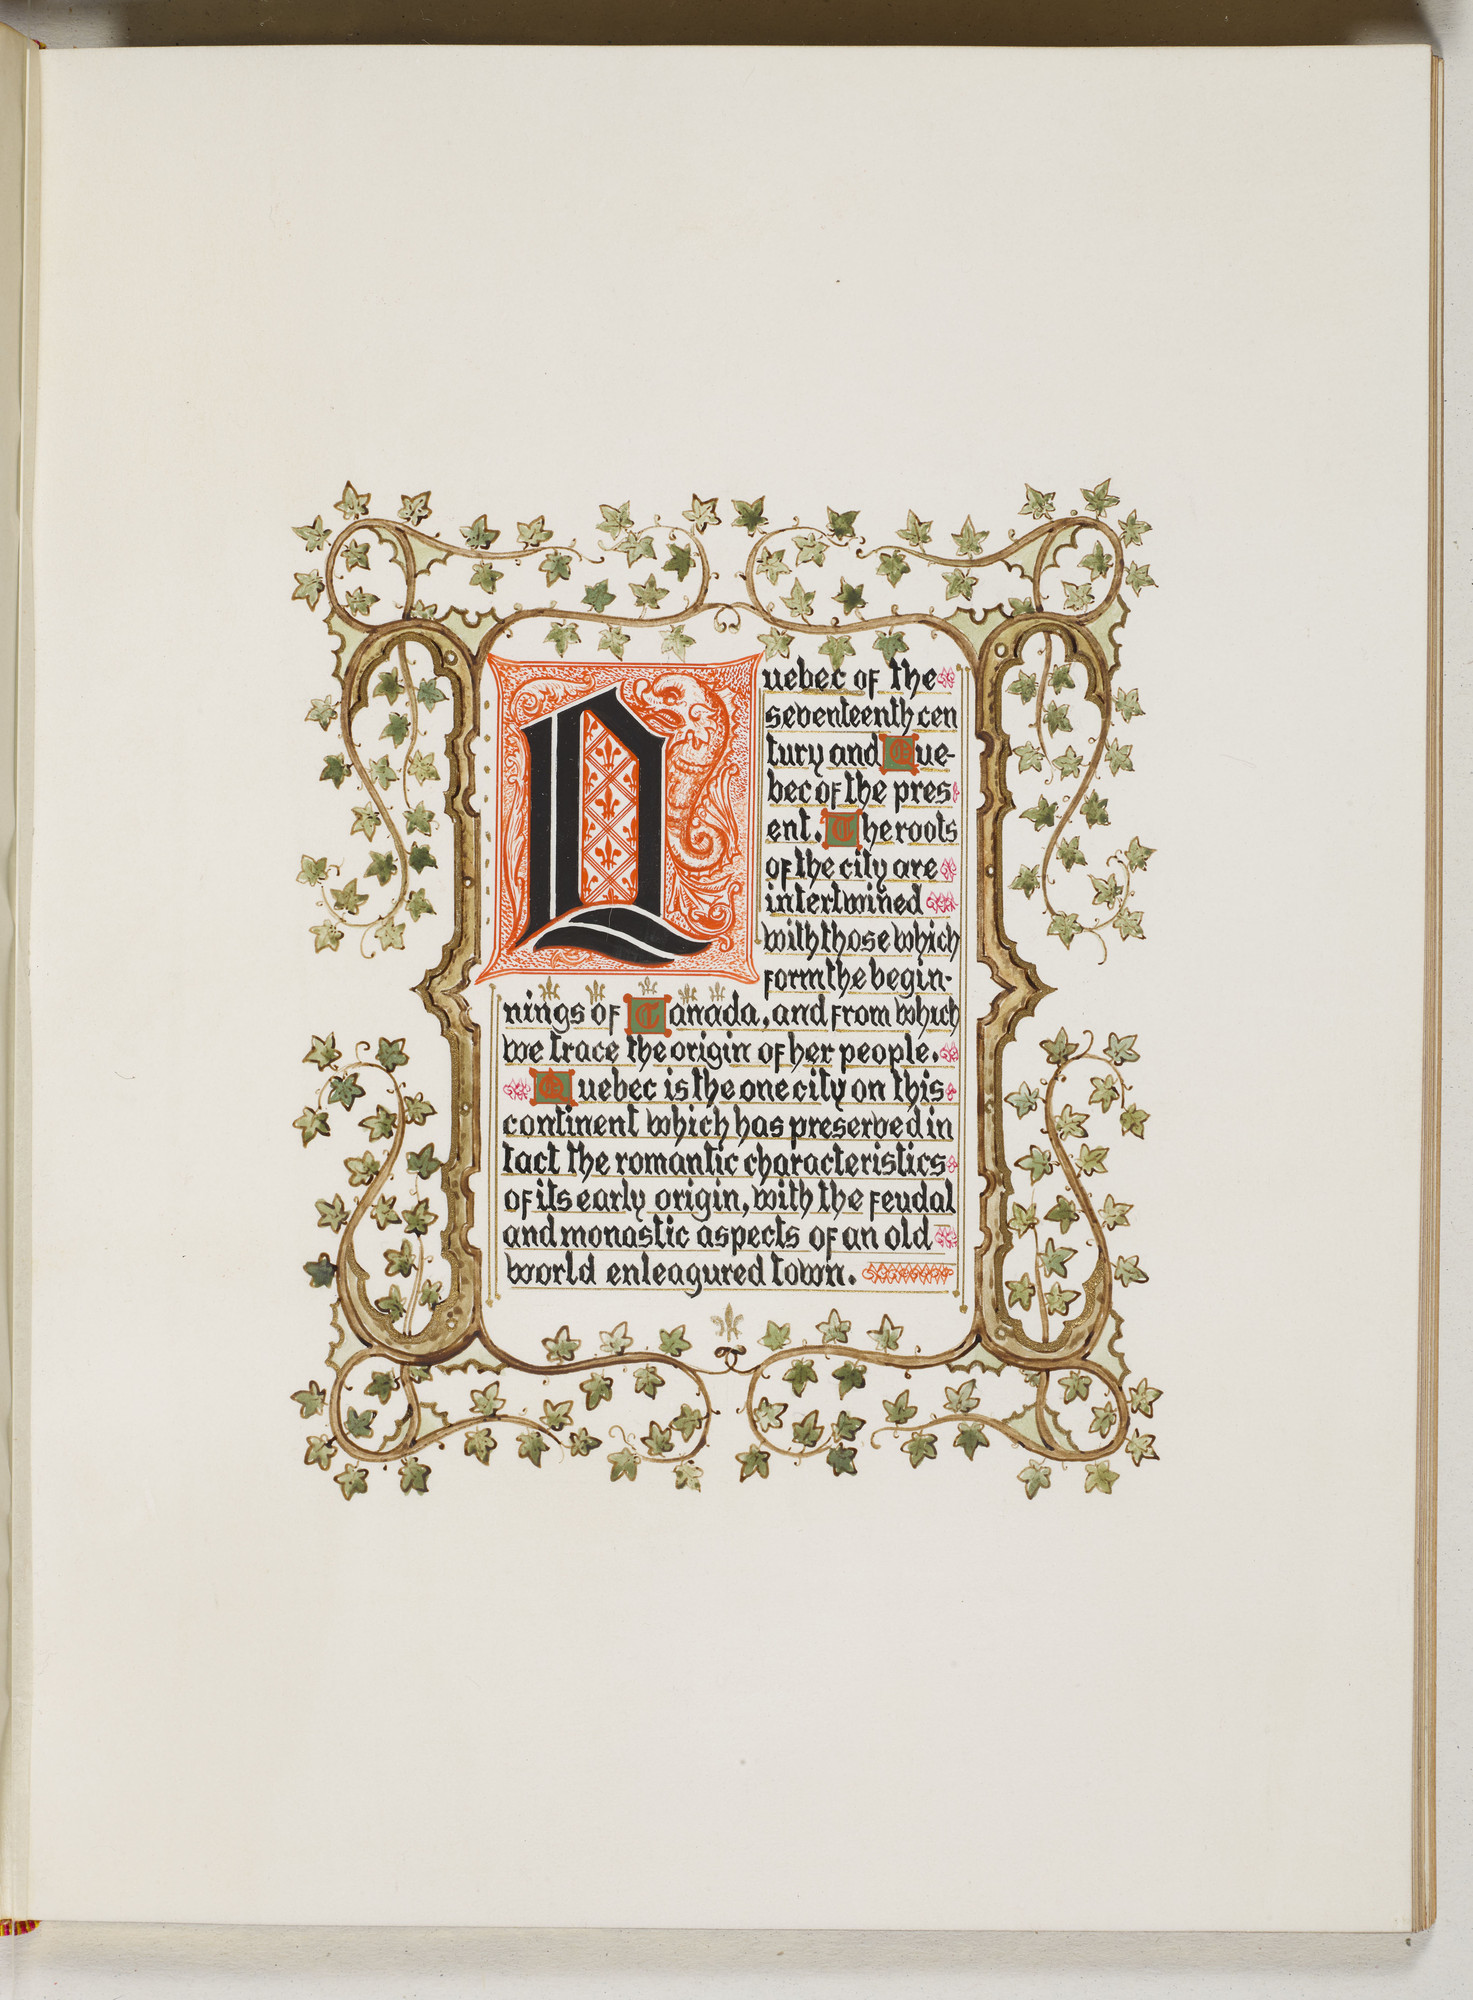 Quebec of the
seventeenth cen
tury and Que-
bec of the pres
ent. The roots
of the city are
intertwined
with those which
form the begin-
nings of Canada, and from which
we trace the origin of her people.
Quebec is the one city on this
continent which has preserved in
tact the romantic characteristics
of its early origin, with the feudal
and monastic aspects of an old
world enleagured town.